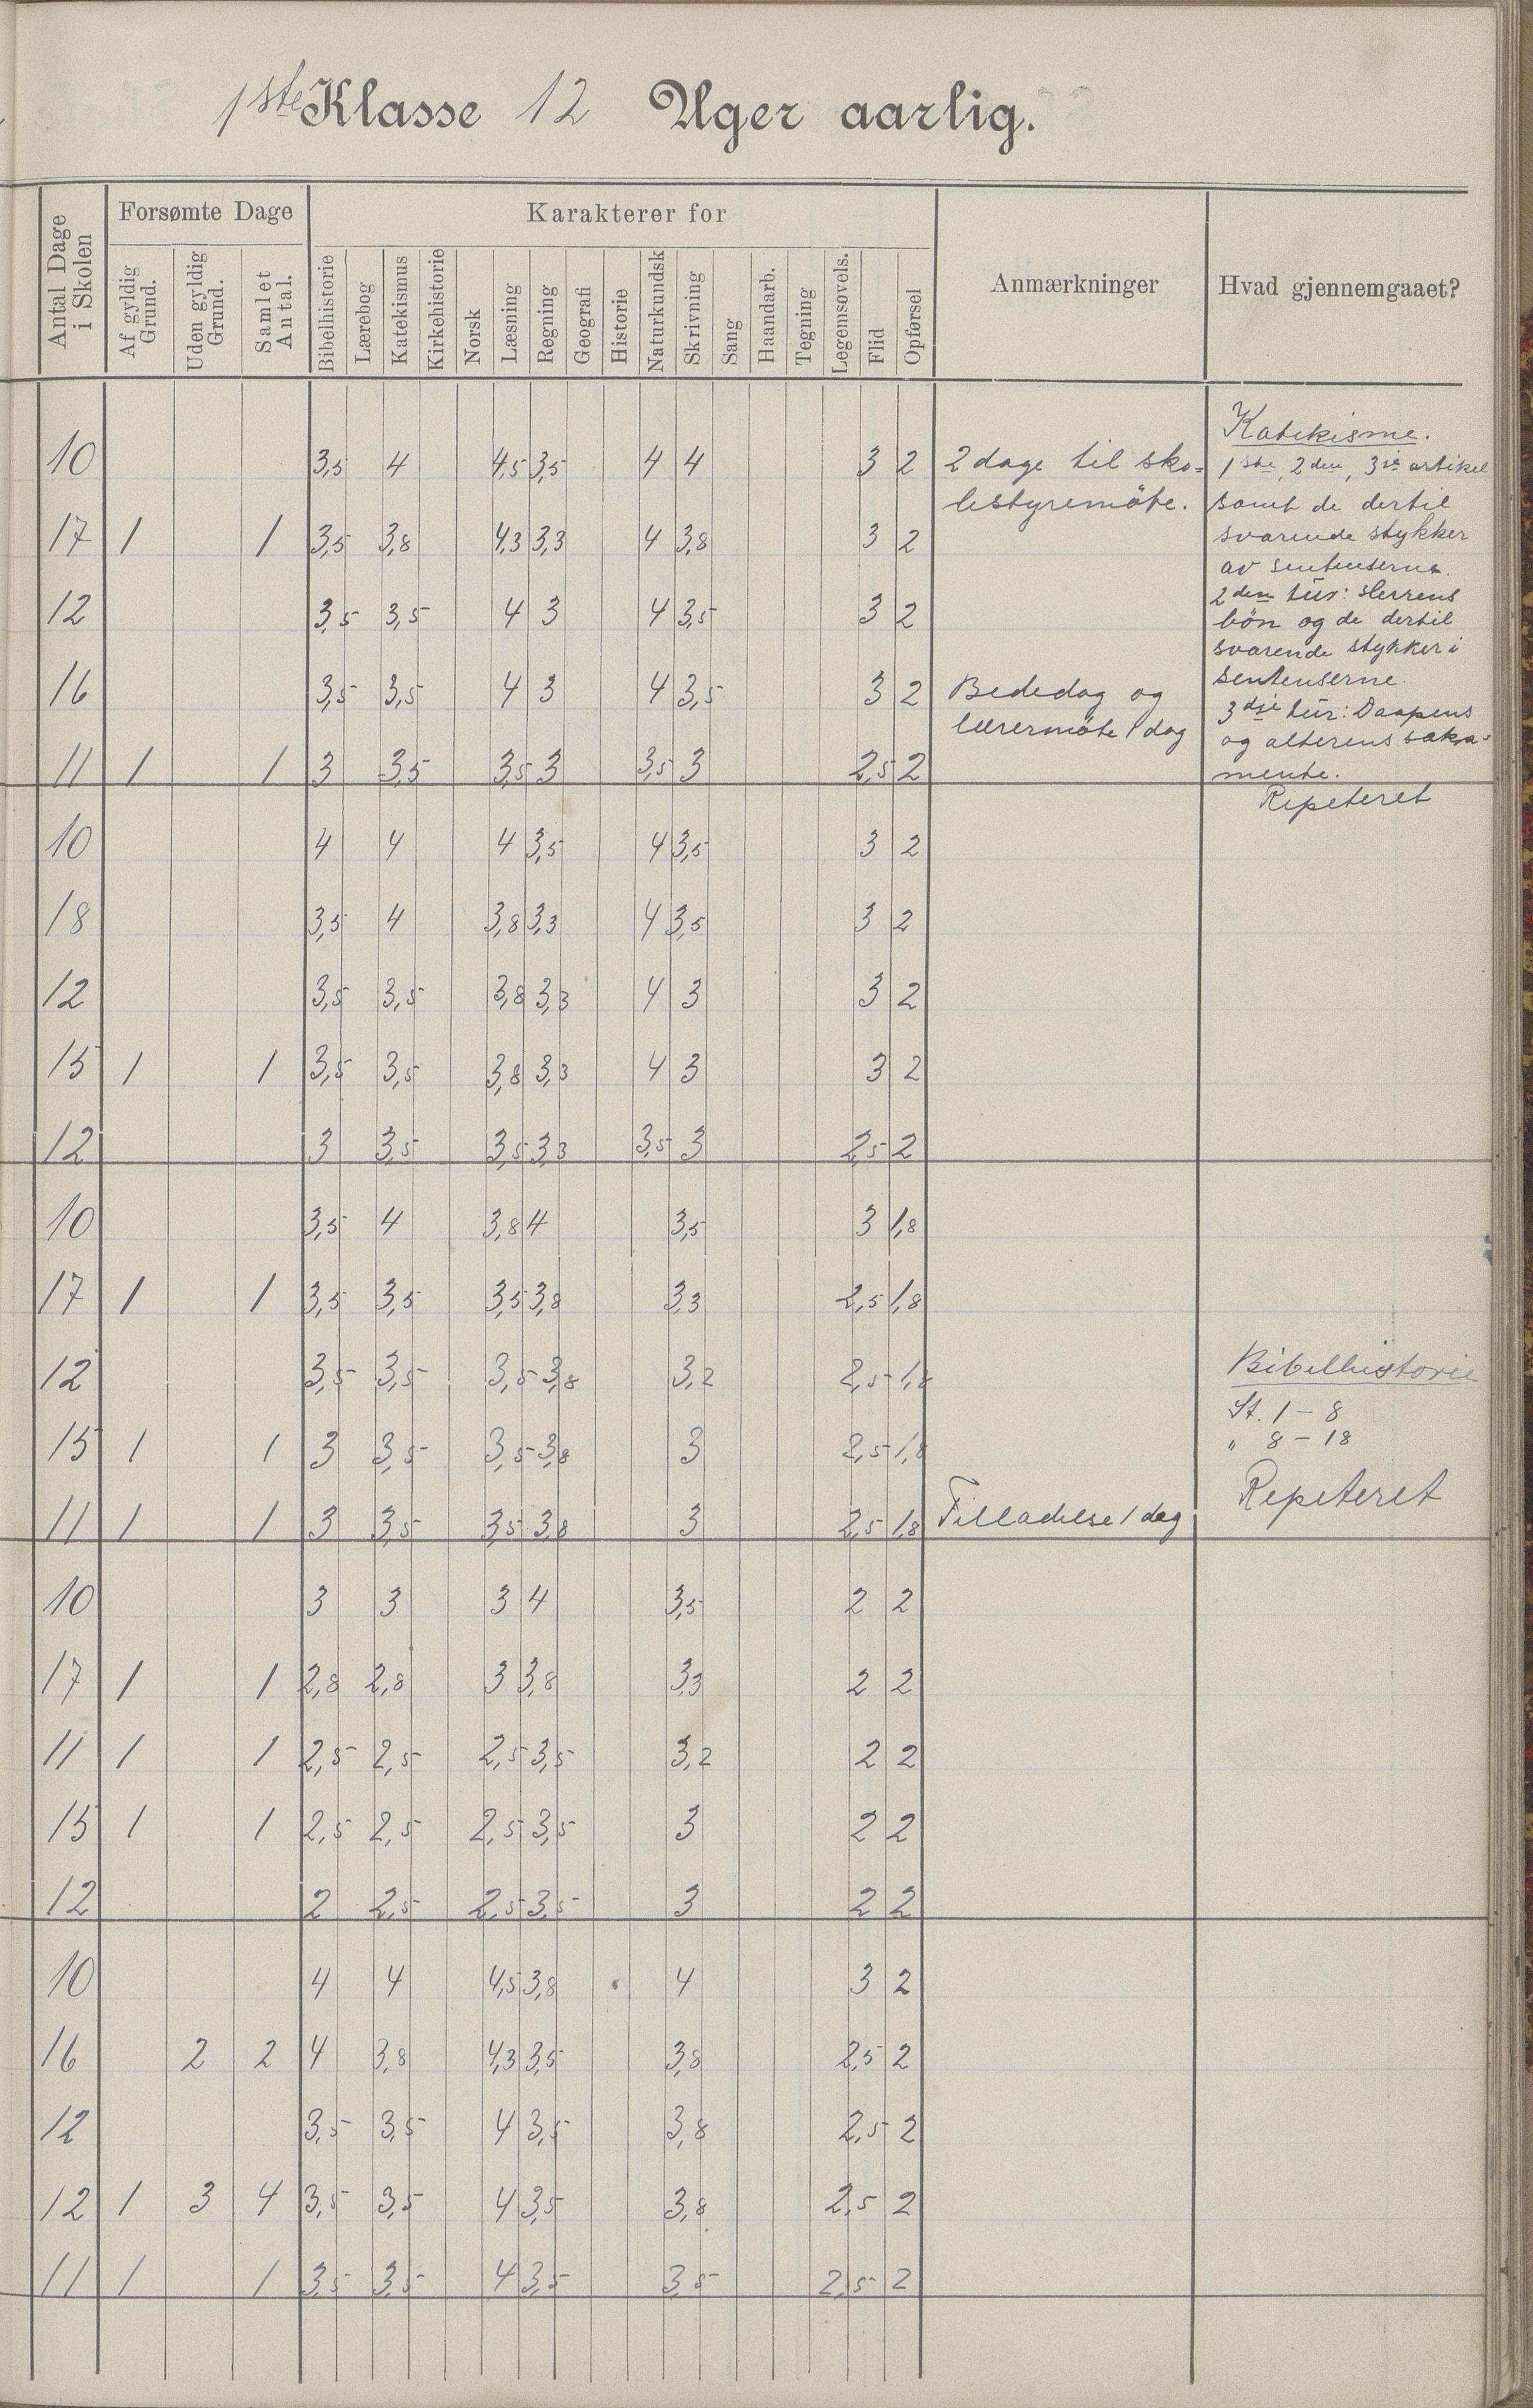 1ste Klasse 12 Uger aarlig.
Antal Dage i Skolen
Forsømte Dage
Af gyldig Grund.
Uden gyldig Grund.
Samlet Antal.
Karakterer for
Bibelhistorie
Lærebog
Katekismus
Kirkehistorie
Norsk
Læsning
Regning
Geografi
Historie
Naturkundsk
Skrivning
Sang
Haandarb.
Tegning
Legemsøvels.
Flid
Opførsel
Anmærkninger
Hvad gjennemgaaet?
Katekisme.
10 3,5 4 4,5 3,5 4 4 3 2 2 dage til sko- 1ste, 2den, 3die artikel
lestyremöte. samt de dertil
17 1 1 3,5 3,8 4,3 3,3 4 3,8 3 2 svarende stykker
av sentenserne.
2den tür: Herrens
12 3,5 3,5 4 3 4 3,5 3 2 bön og de dertil
svarende stykker i
16 3,5 3,5 4 3 4 3,5 3 2 Bededag og sentenserne.
3dje tür: Daapens
lærermöte 1 dag og alterens sakra-
11 1 1 3 3,5 3,5 3 3,5 3 2,5 2 mente.
Repeteret
10 4 4 4 3,5 4 3,5 3 2
18 3,5 4 3,8 3,3 4 3,5 3 2
12 3,5 3,5 3,8 3,3 4 3 3 2
15 1 1 3,5 3,5 3,8 3,3 4 3 3 2
12 3 3,5 3,5 3,3 3,5 3 2,5 2
10 3,5 4 3,8 4 3,5 3 1,8
17 1 1 3,5 3,5 3,5 3,8 3,3 2,5 1,8
12 3,5 3,5 3,5 3,8 3,2 2,5 1,8 Bibelhistorie
St. 1 - 8
15 1 1 3 3,5 3,5 3,8 3 2,5 1,8 " 8 - 18
11 1 1 3 3,5 3,5 3,8 3 2,5 1,8 Tilladelse 1 dag Repeteret
10 3 3 3 4 3,5 2 2
17 1 1 2,8 2,8 3 3,8 3,3 2 2
11 1 1 2,5 2,5 2,5 3,5 3,2 2 2
15 1 1 2,5 2,5 2,5 3,5 3 2 2
12 2 2,5 2,5 3,5 3 2 2
10 4 4 4,5 3,8 4 3 2
16 2 2 4 3,8 4,3 3,5 3,8 2,5 2
12 3,5 3,5 4 3,5 3,8 2,5 2
12 1 3 4 3,5 3,5 4 3,5 3,8 2,5 2
11 1 1 3,5 3,5 4 3,5 3,5 2,5 2